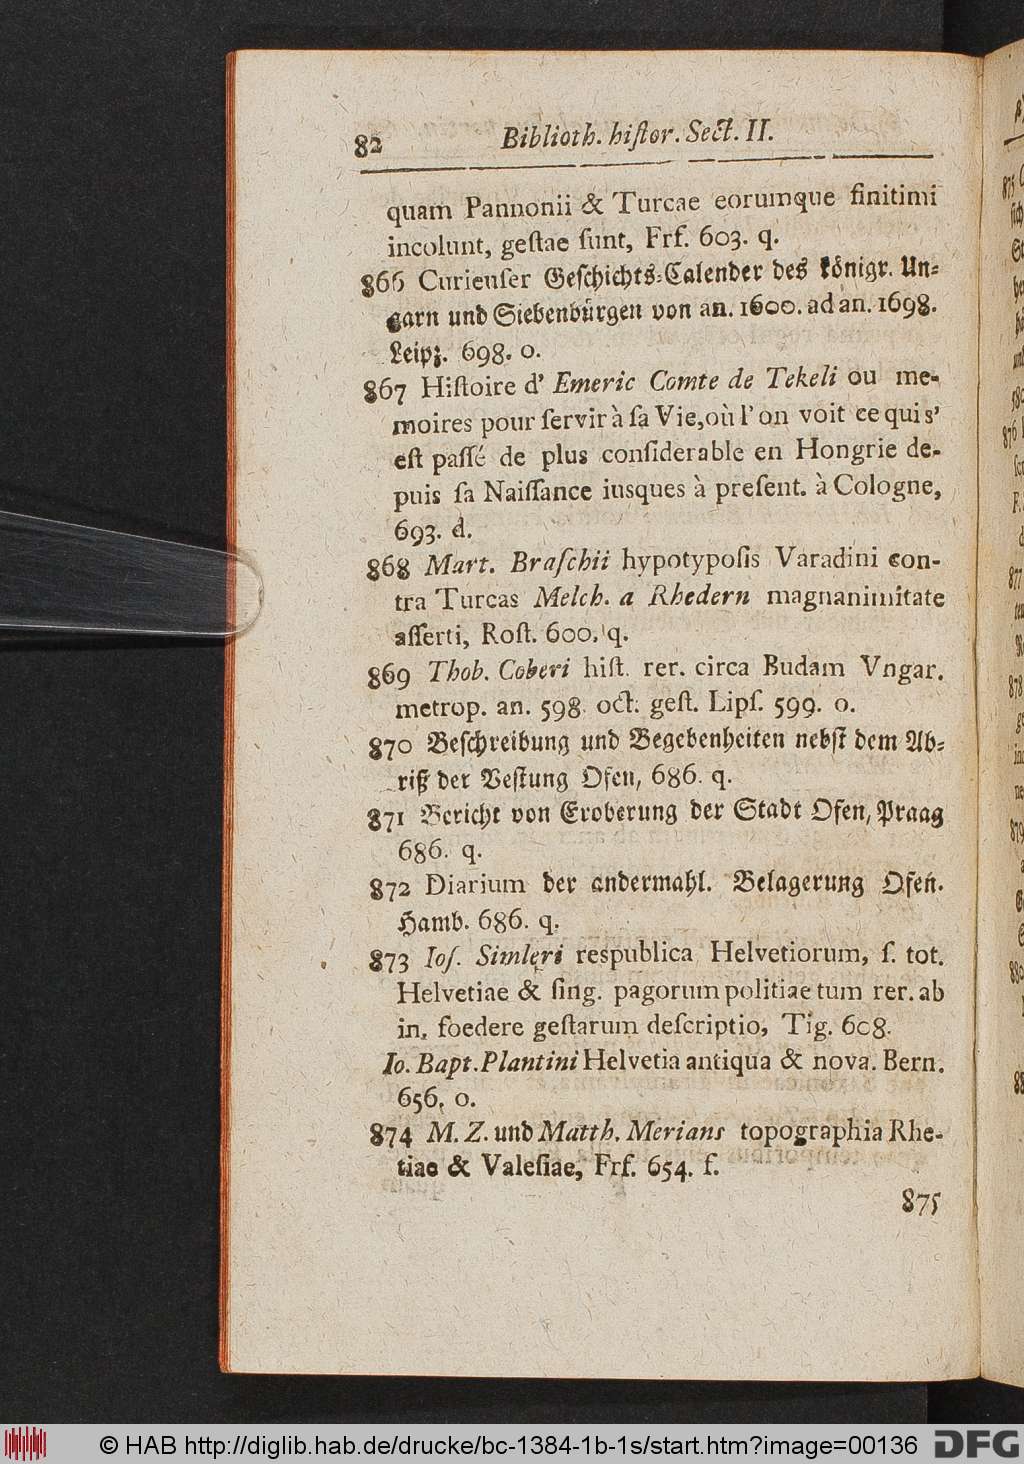 82 Biblioth. hiſtor. Sect. II.
quam Pannonii & Turcae eorumque finitimi
incolunt, geſtae ſunt, Frf. 603. q.
866 Curieuſer Geſchichts-Calender des königr. Un-
garn und Siebenbürgen von an. 1600. ad an. 1698.
Leipz. 698. o.
867 Hiſtoire d' Emeric Comte de Tekeli ou me-
moires pour ſervir à ſa Vie, où l' on voit ce qui s'
eſt paſſé de plus conſiderable en Hongrie de-
puis ſa Naiſſance iusques à preſent. à Cologne,
693. d.
868 Mart. Braſchii hypotypoſis Varadini con-
tra Turcas Melch. a Rhedern magnanimitate
aſſerti, Roſt. 600. q.
869 Thob. Coberi hiſt. rer. circa Budam Vngar.
metrop. an. 598. oct. geſt. Lipſ. 599. o.
870 Beſchreibung und Begebenheiten nebſt dem Ab-
riß der Veſtung Ofen, 686. q.
871 Bericht von Eroberung der Stadt Ofen, Praag
686. q.
872 Diarium der andermahl. Belagerung Ofen.
Hamb. 686. q.
873 Ioſ. Simleri respublica Helvetiorum, ſ. tot.
Helvetiae & ſing. pagorum politiae tum rer. ab
in. foedere geſtarum deſcriptio, Tig. 608.
Io. Bapt. Plantini Helvetia antiqua & nova. Bern.
656. o.
874 M. Z. und Matth. Merians topographia Rhe-
tiae & Valeſiae, Frf. 654. f.
875
© HAB http://diglib.hab.de/drucke/bc-1384-1b-1s/start.htm?image=00136 DFG